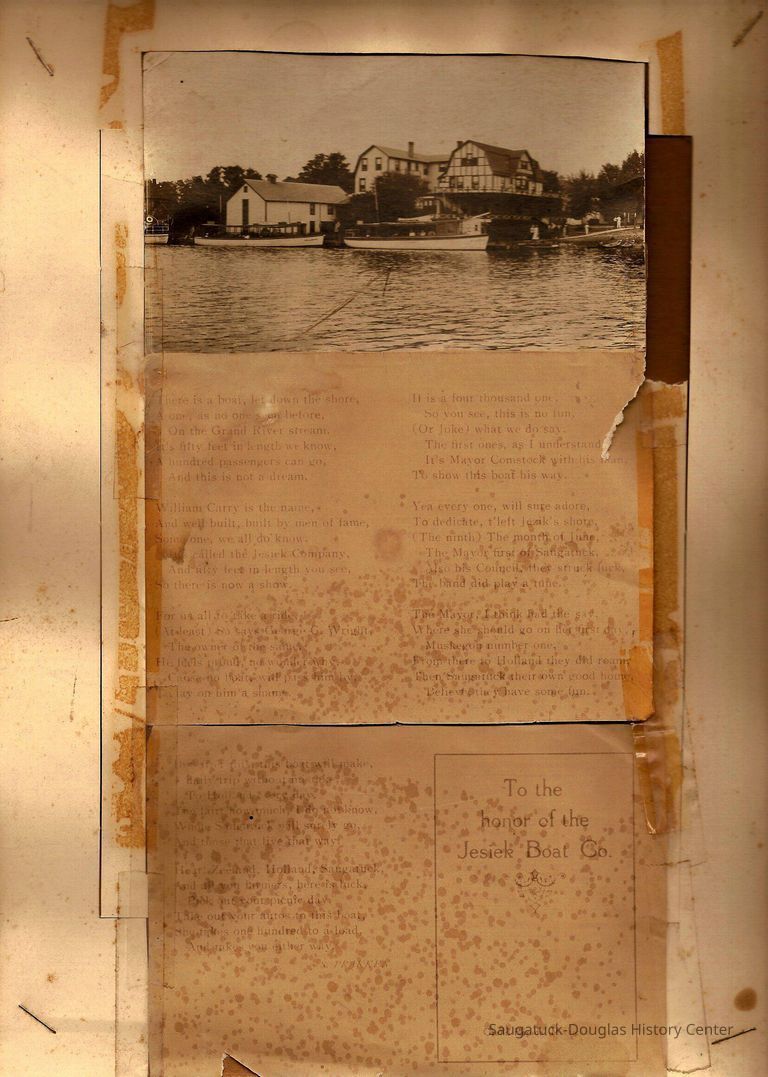 There is a boat, let down the shore,
A one, as no one seen before,
On the Grand River stream.
It's fifty feet in length we know,
A hundred passengers can go,
And this is not a dream.
William Carry is the name,
And well built, built by men of fame,
Some one, we all do know.
called the Jesiek Company,
And fifty feet in length you see,
So there is now a show.
For us all to take a ride,
(At least) So says George C. Wright,
The owner of the same.
He feels proud, no wonder why,
Cause no boats will pass him by,
Lay on him a shame.
It is a four thousand one,
So you see, this is no fun,
(Or Joke) what we do say.
The first ones, as I understand
It's Mayor Comstock with his man,
To show this boat his way.
Yea every one, will sure adore,
To dedicate, t'left Jesik's shore,
(The ninth) The month of June,
The Mayor first of Saugatuck,
Also his Council, they struck luck,
The band did play a tune.
The Mayor, I think had the say,
Where she should go on her first day,
Muskegon number one,
From there to Holland they did roam,
Then Saugatuck their own good home,
Believe they have some fun.
this boat will make,
daily trip without
To Holland
how much, I do not know,
will surely go,
And those that live that way.
Zeeland, Holland, Saugatuck,
And all you farmers, here is luck,
Pick out your picnic day
Take out your autos to this boat,
She takes one hundred to a load,
And takes you either way.
To the
honor of the
Jesiek Boat Co.
Saugatuck-Douglas History Center